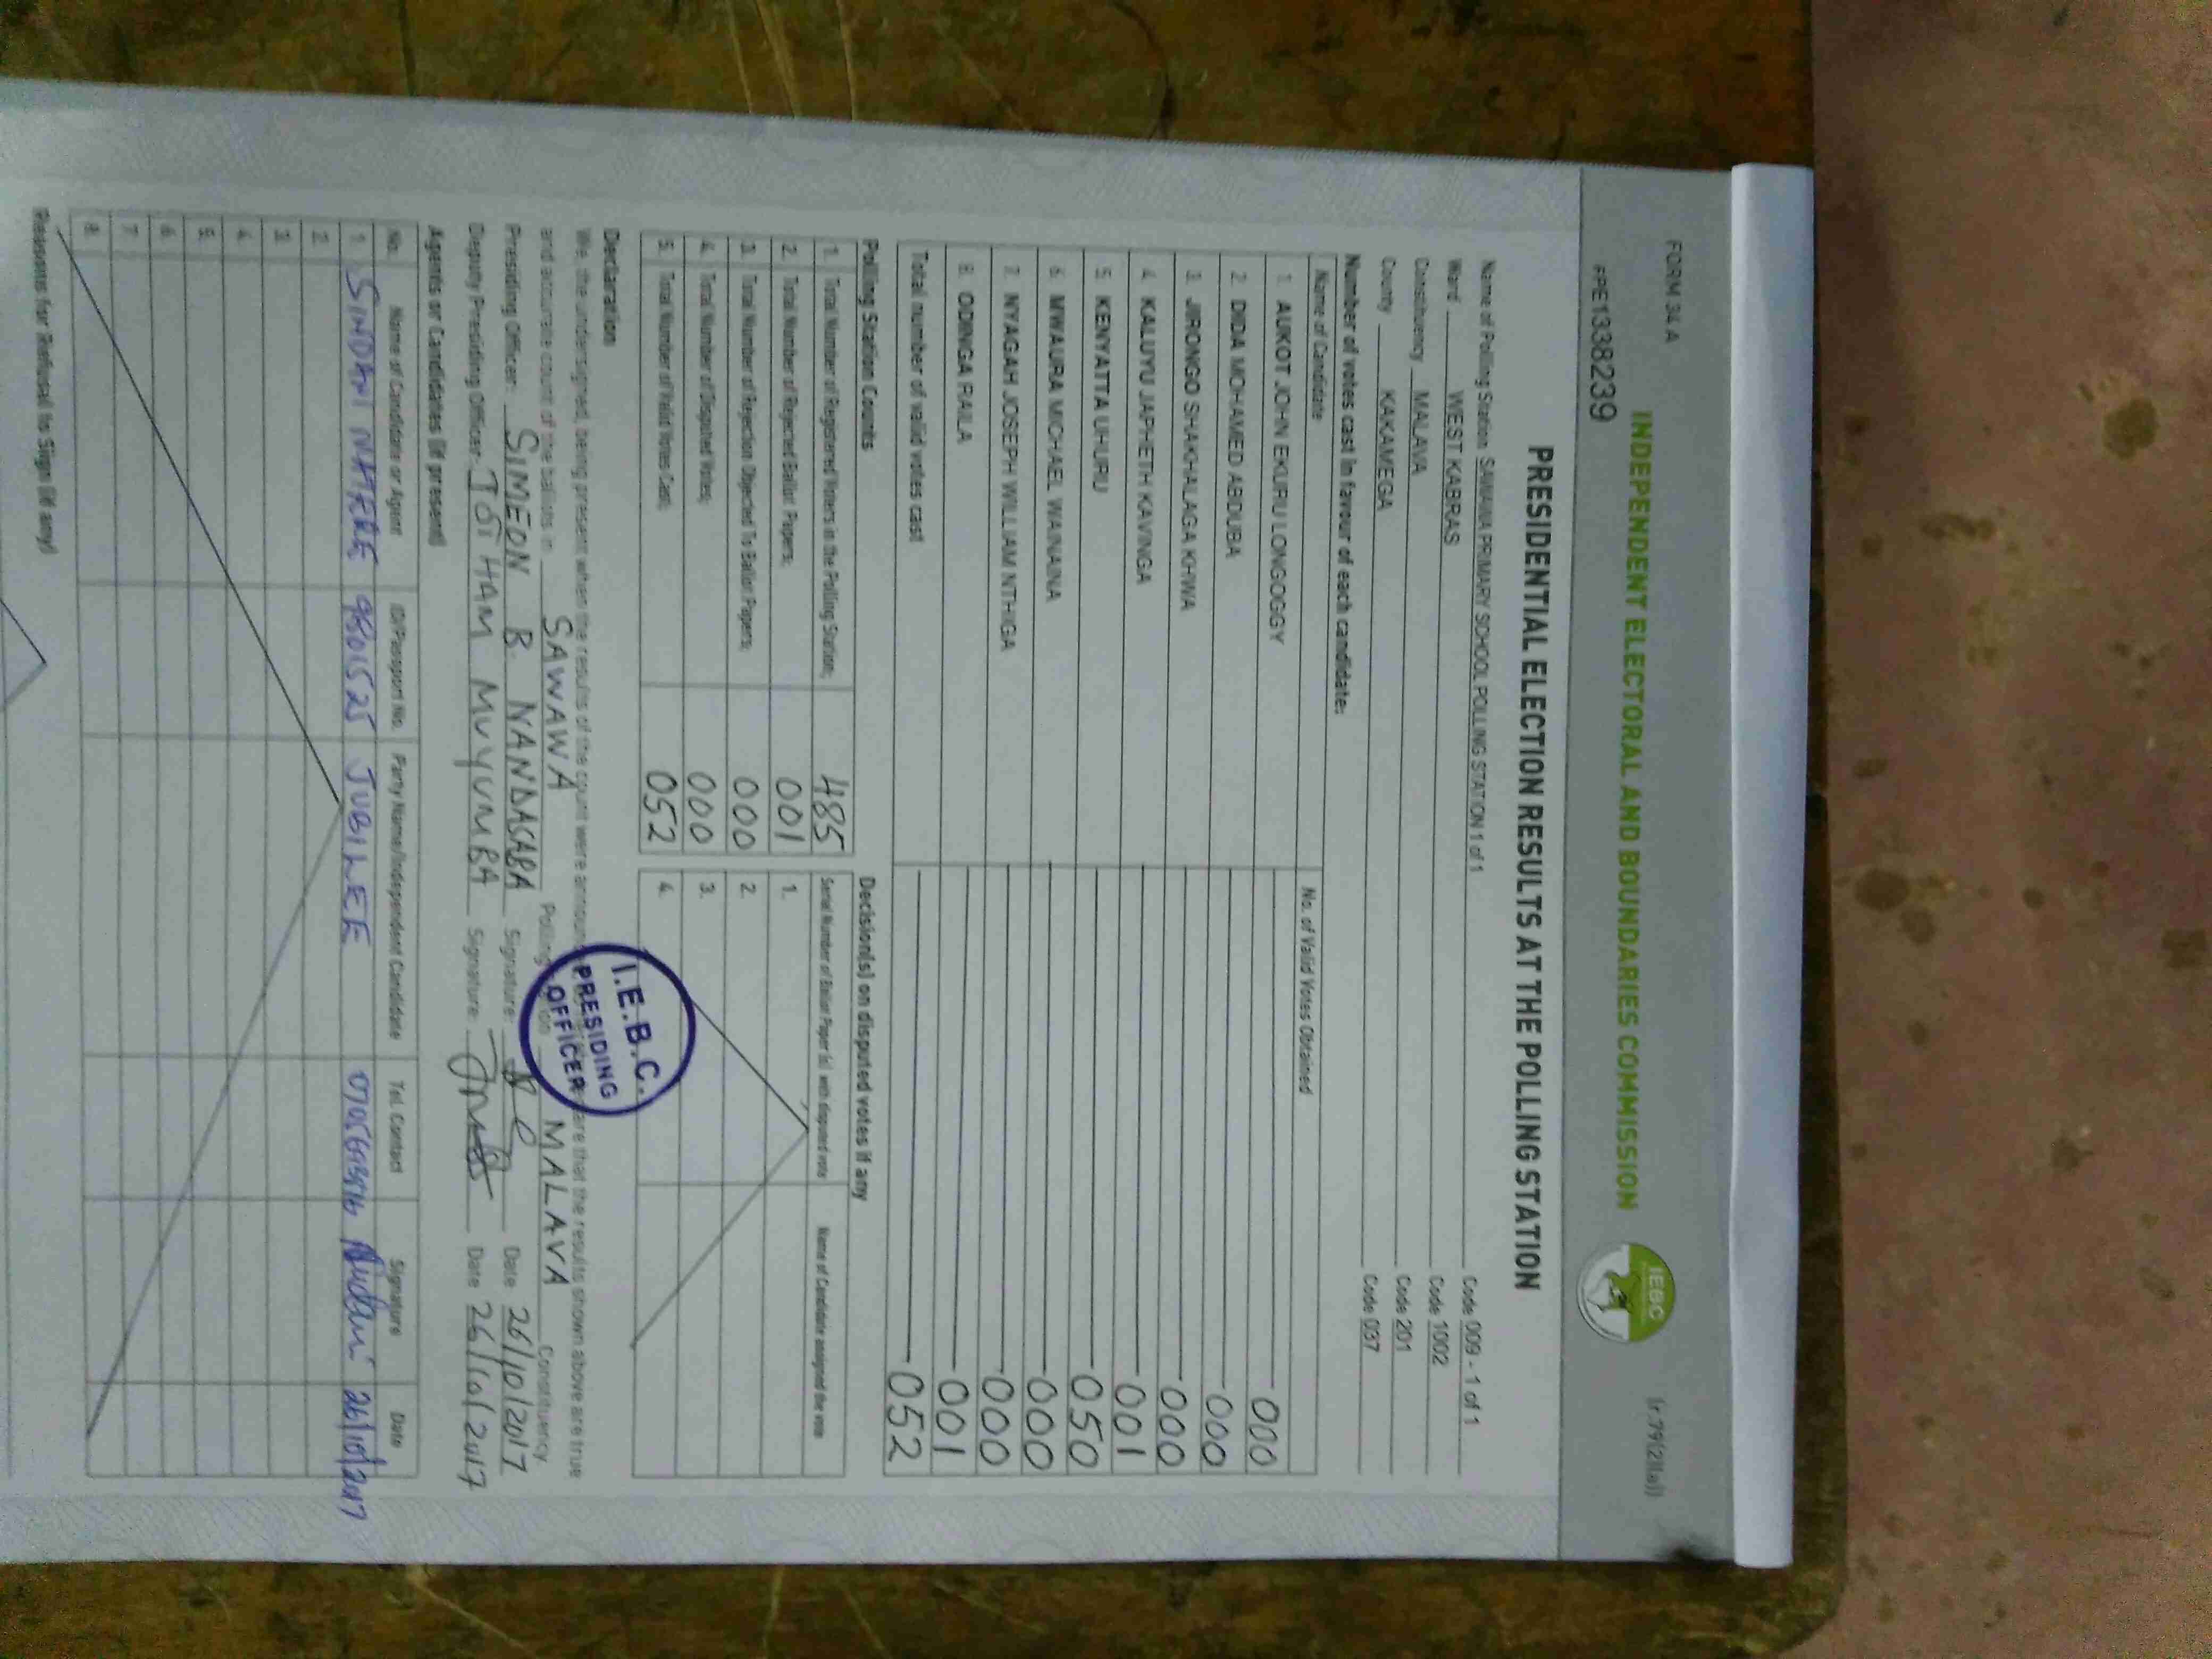 FORM 34 A
(r.79(2)(a))
INDEPENDENT ELECTORAL AND BOUNDARIES COMMISSION
IEBC
PRESIDENTIAL ELECTION RESULTS AT THE POLLING STATION
Name of Polling Station SAWAWA PRIMARY SCHOOL POLLING STATION 1 of 1 Code 009 - 1 of 1
Ward WEST KABRAS Code 1002
Constituency MALAVA Code 201
County KAKAMEGA Code 037
Number of votes cast in favour of each candidate:
Name of Candidate No. of Valid Votes Obtained
1. AUKOT JOHN EKURU LONGOGGY 000
2. DIDA MOHAMED ABDUBA 000
3. JIRONGO SHAKHALAGA KHWA 000
4. KALUYU JAPHETH KAVINGA 001
5. KENYATTA UHURU 050
6. MWAURA MICHAEL WAINAINA 000
7. NYAGAH JOSEPH WILLIAM NTHIGA 000
8. ODINGA RAILA 001
Total number of valid votes cast 052
Polling Station Counts
1. Total Number of Registered Voters in the Polling Station; 485
2. Total Number of Rejected Ballot Papers; 001
3. Total Number of Rejection Objected To Ballot Papers; 000
4. Total Number of Disputed Votes; 000
5. Total Number of Valid Votes Cast; 052
Decision(s) on disputed votes if any
Serial Number of Ballot Paper(s) with disputed vote Name of Candidate assigned the vote
1.
2.
3.
4.
Declaration
We, the undersigned, being present when the results of the count were announced are that the results shown above are true
and accurate count of the ballots in SAWAWA Polling MALAVA Constituency
I.E.B.C.
PRESIDING
OFFICER
Presiding Officer: SIMEON B. Signature: Date 26/10/2017
Deputy Presiding Officer: JOTHAM MUYUMBA Signature: Date 26/10/2017
Agents or Candidates (if present)
No. Name of Candidate or Agent ID/Passport No. Party Name/Independent Candidate Tel. Contact Signature Date
1. SINDANI JUBILEE 26/10/2017
2.
3.
4.
5.
6.
7.
8.
Reasons for Refusal to Sign (if any)